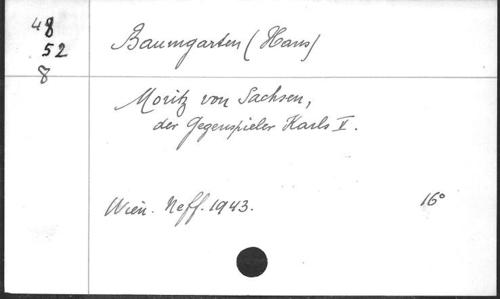 48
52
8
Baumgarten (Hans)
Moritz von Sachsen,
der Gegenspieler Karls V.
Wien. Neff. 1943.
16°